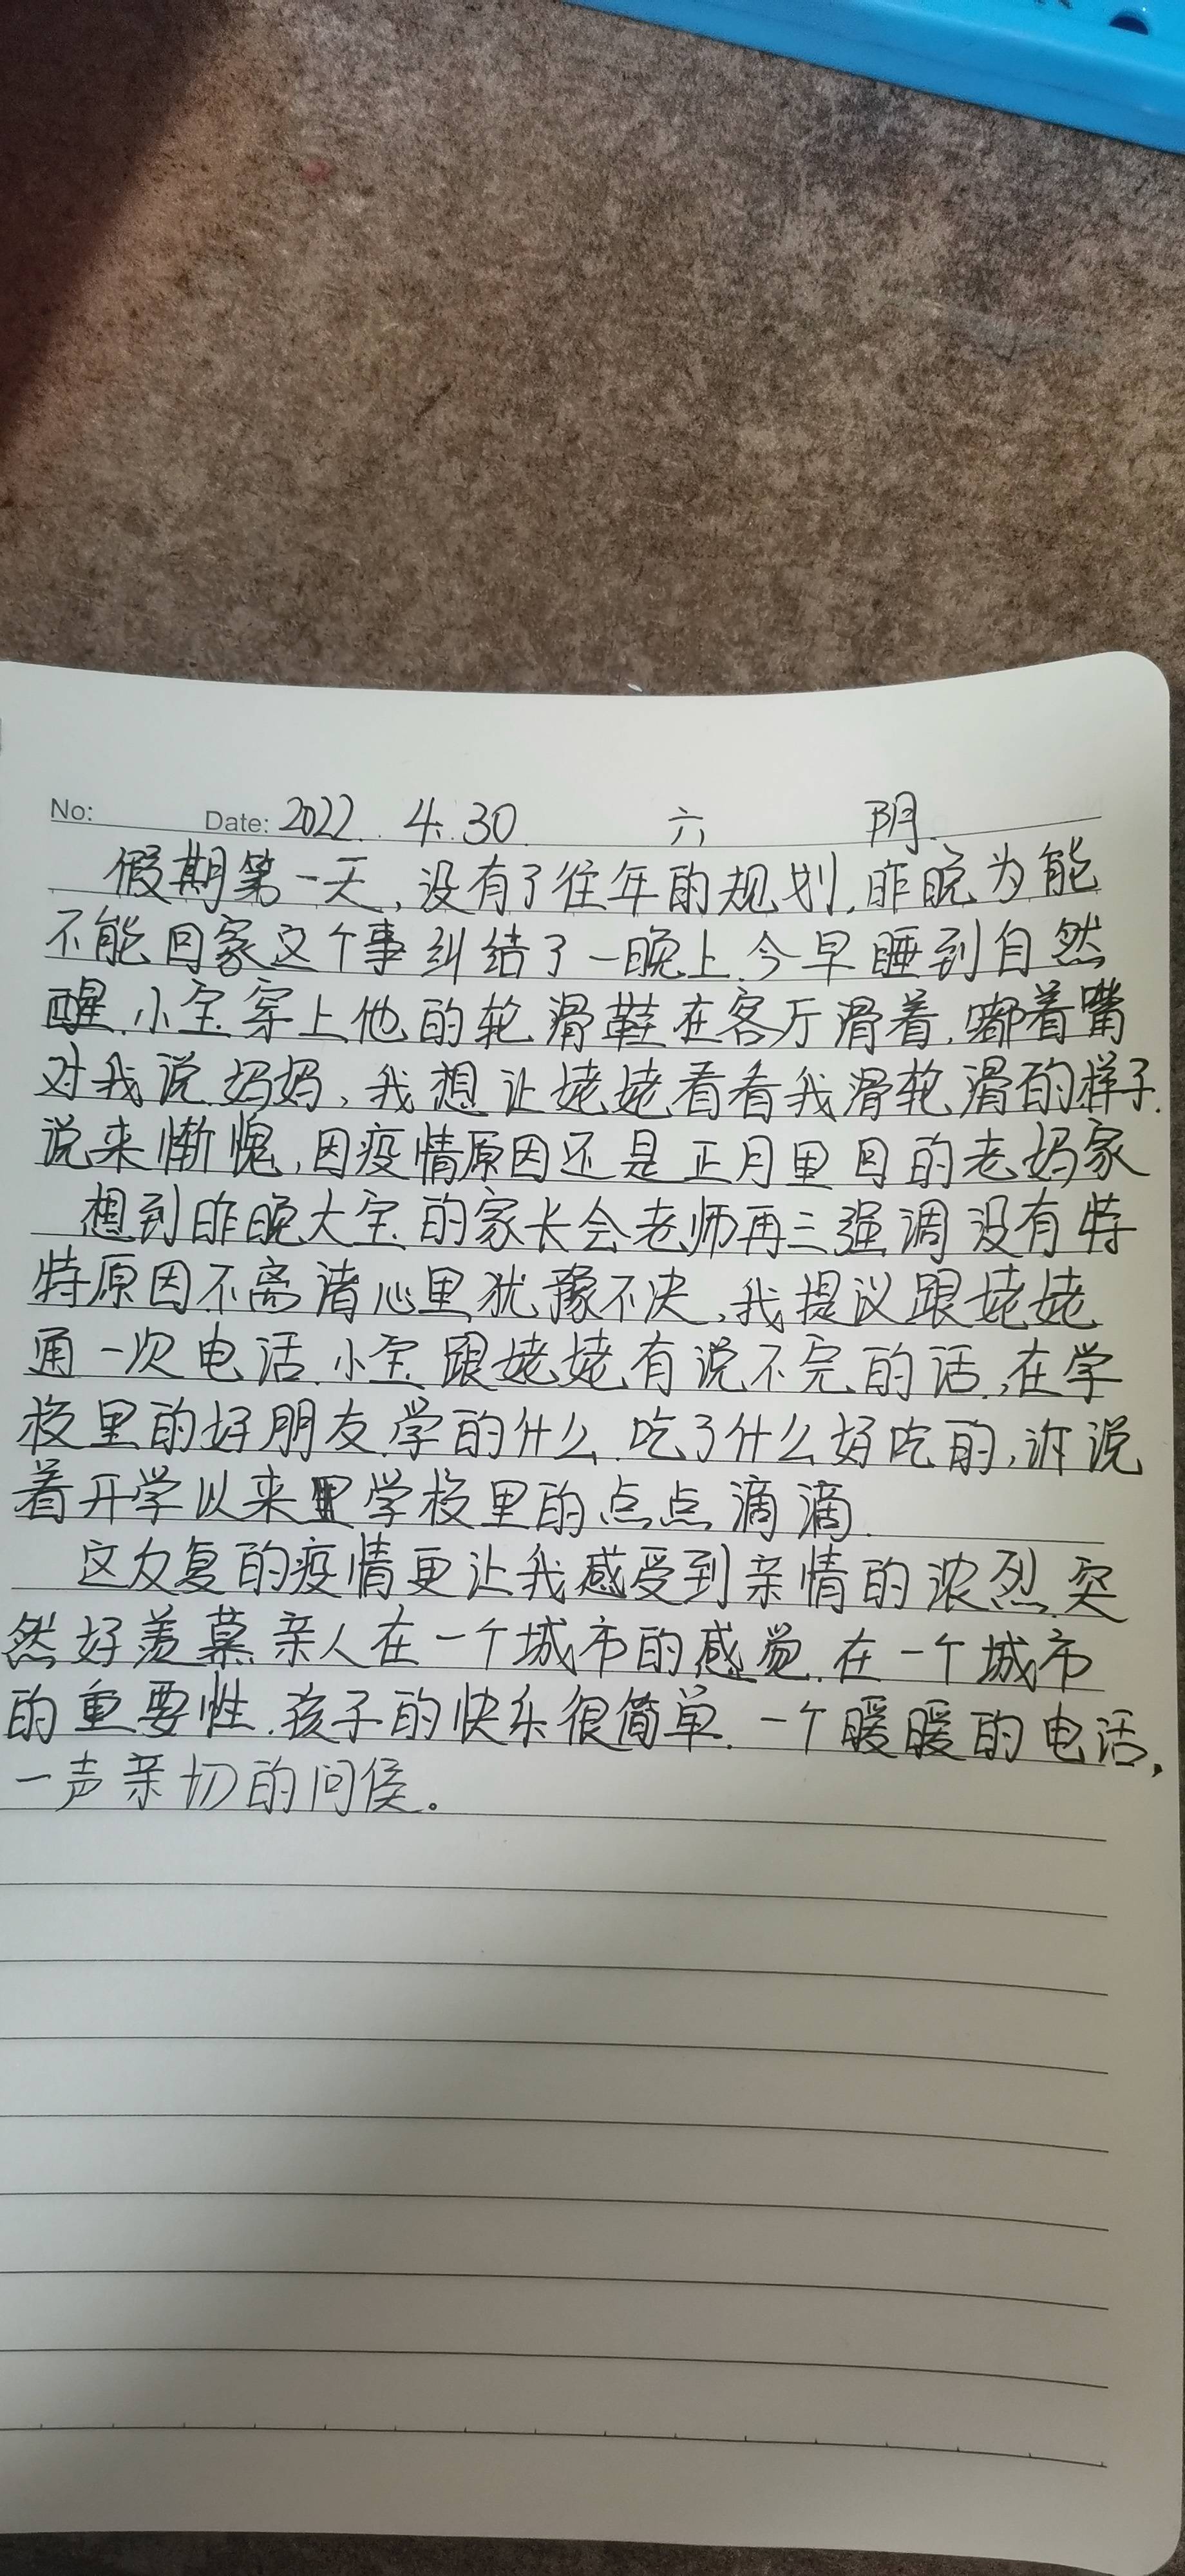 No: Date: 2022. 4. 30. 六 阴.
假期第一天,没有了往年的规划.昨晚为能
不能回家这个事纠结了一晚上.今早睡到自然
醒.小宝穿上他的轮滑鞋在客厅滑着,嘟着嘴
对我说妈妈,我想让姥姥看看我滑轮滑的样子.
说来惭愧,因疫情原因还是正月里回的老妈家
想到昨晚大宝的家长会老师再三强调没有特
特原因不离诸心里犹豫不决,我提议跟姥姥
通一次电话.小宝跟姥姥有说不完的话,在学
校里的好朋友.学的什么.吃了什么好吃的,诉说
着开学以来学校里的点点滴滴.
这反复的疫情更让我感受到亲情的浓烈.突
然好羡慕亲人在一个城市的感觉.在一个城市
的重要性.孩子的快乐很简单.一个暖暖的电话,
一声亲切的问侯。